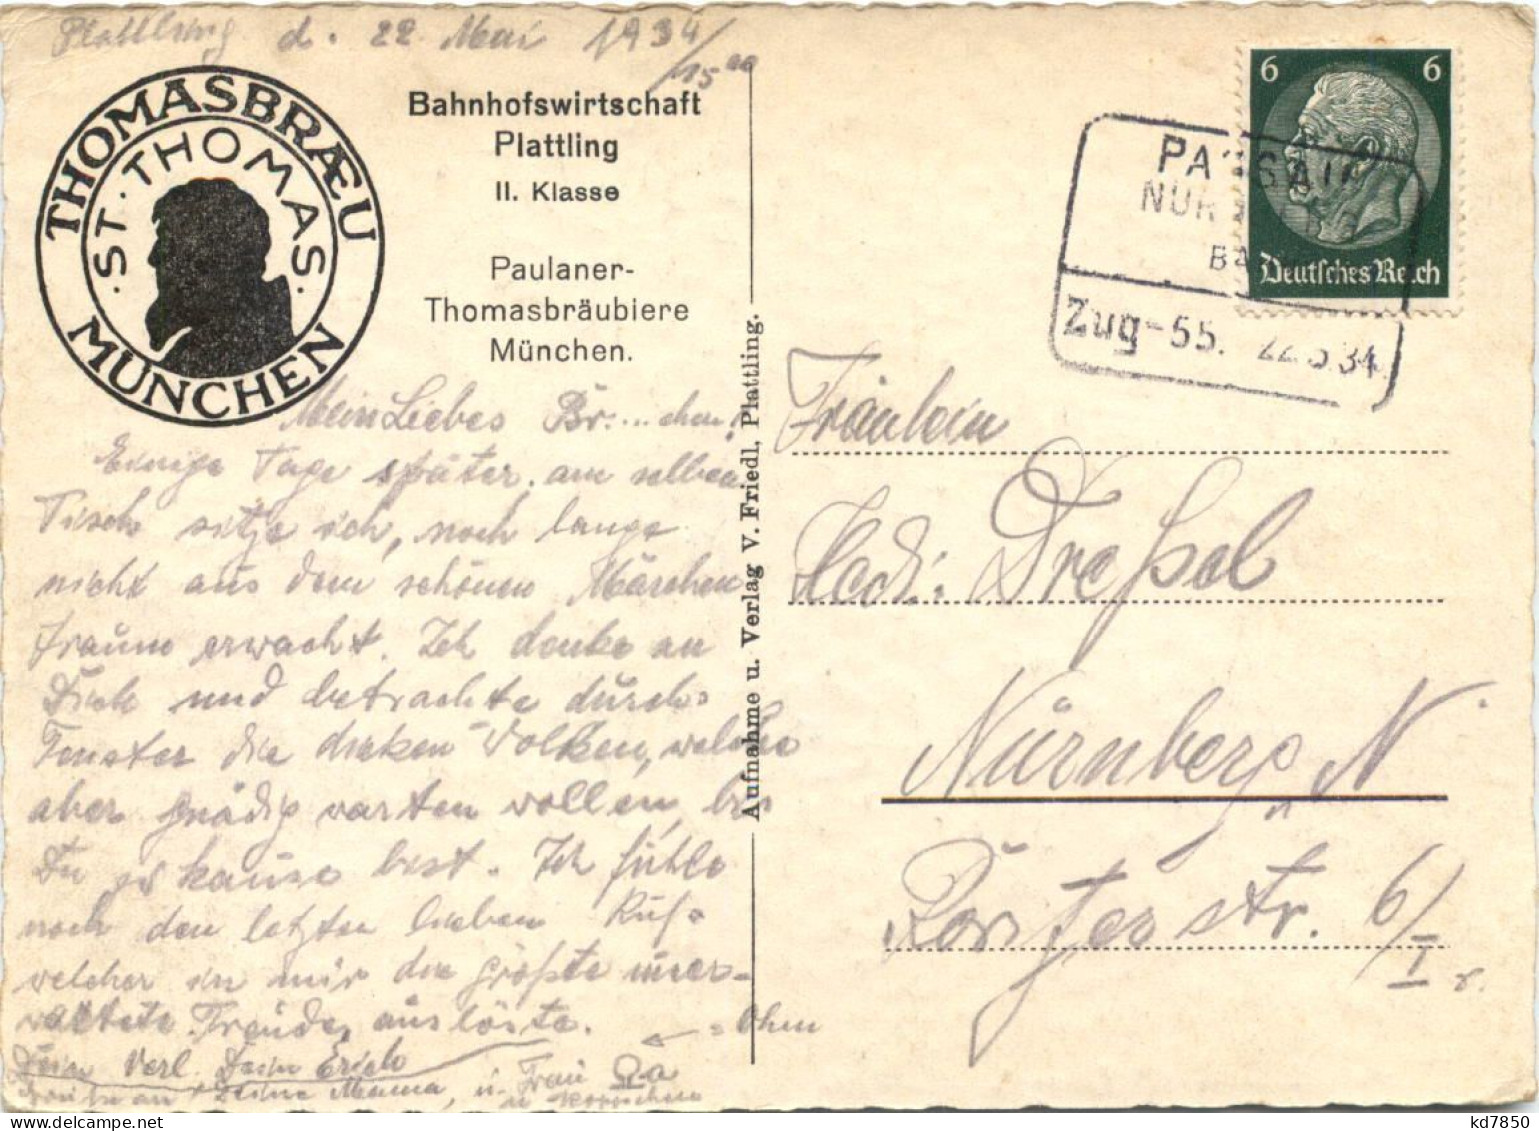 Plattling d. 22. Mai 1934/15⁰⁰
THOMASBRÆU
MÜNCHEN
· ST. THOMAS ·
Bahnhofswirtschaft
Plattling
II. Klasse
Paulaner-
Thomasbräubiere
München.
Mein Liebes Br....chen!
Einige Tage später. am selben
Tisch sitze ich, noch lange
nicht aus dem schönen Märchen
traum erwacht. Ich denke an
Dich und betrachte durch's
Fenster die dicken Wolken, welche
aber gnädig warten wollen, bis
Du zu hause bist. Ich fühle
noch den letzten lieben Kuß
welcher in mir die größte uner-
wartete Freude, auslöste.
Dein Verl. Dein Erich
Deine Mama, u. Frau Ωa
u
= Ohm
Aufnahme u. Verlag V. Friedl, Plattling.
6 6
Deutsches Reich
PASSAU
NÜR
BA
Zug-55. 22.5.34
Fräulein
Hedi: Dreßel
Nürnberg, N
6/I r.
kd7850